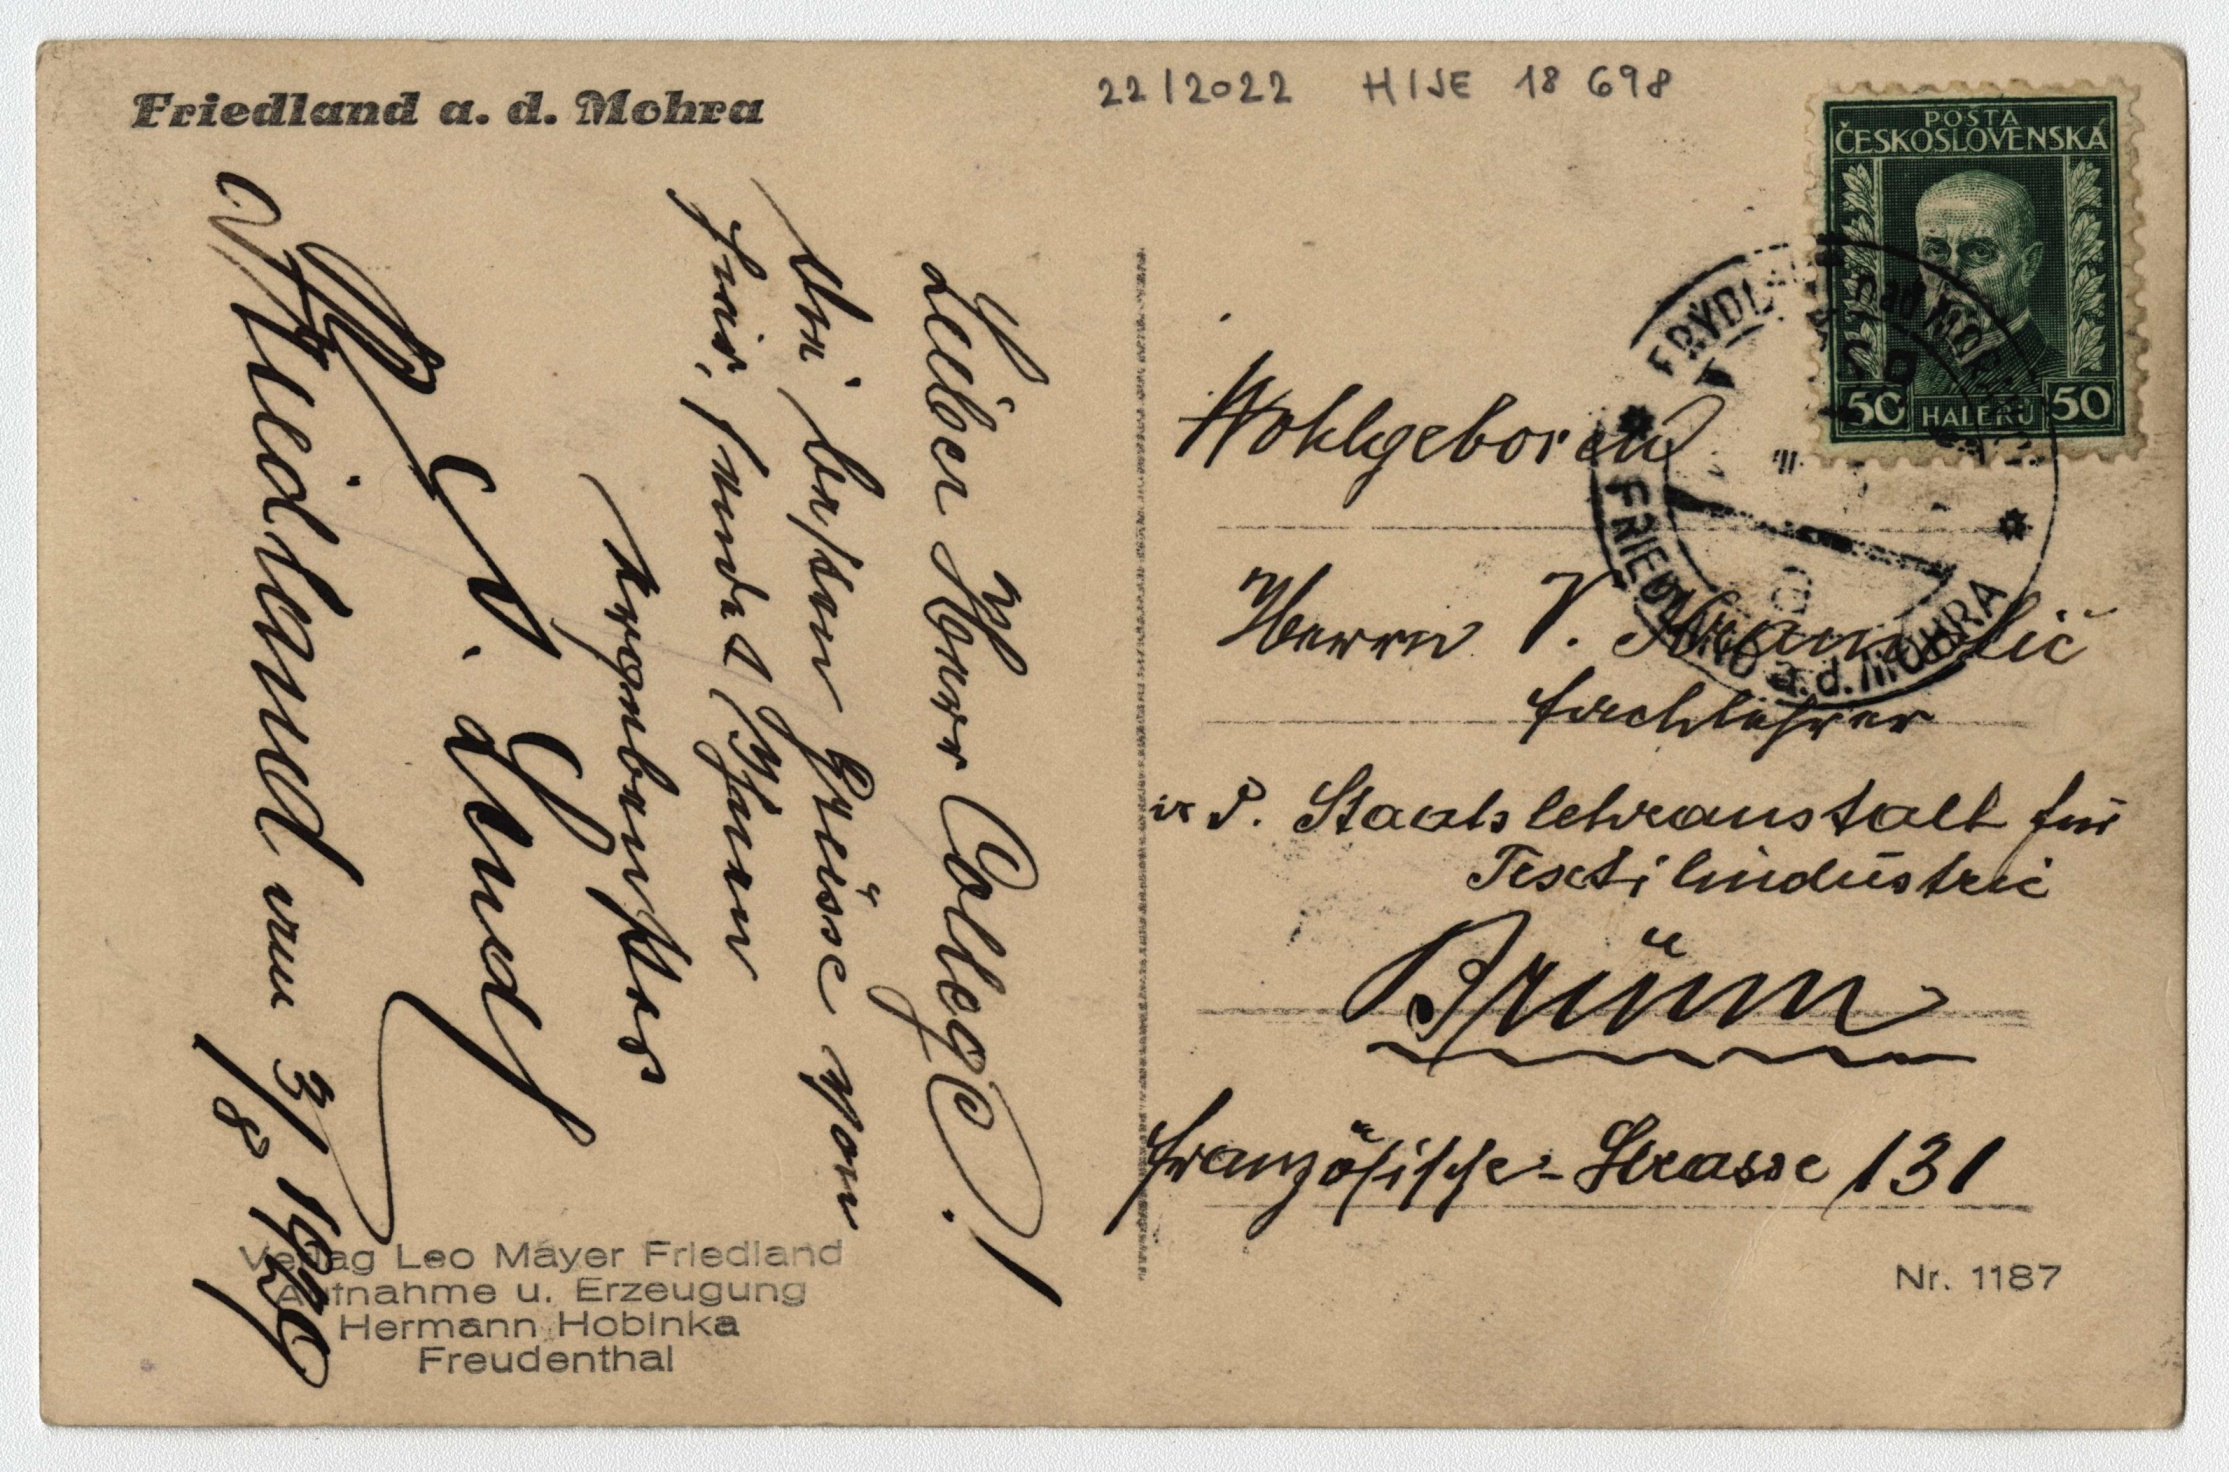 Friedland a. d. Mohra
22/2022 H/JE 18 698
POSTA
ČESKOSLOVENSKÁ
50 HALÉŘŮ 50
FRÝDLANT nad MORAVICÍ
FRIEDLAND a. d. MOHRA
Lieber Herr Collega!
Die besten Grüsse von
hier, sendet Ihnen
Ergebenster
Friedland am 3/8 1929
Wohlgeboren
Herrn V.
Fachlehrer
a. d. Staatslehranstalt für
Textilindustrie
Brünn
Französische-Strasse 131
Verlag Leo Mayer Friedland
Aufnahme u. Erzeugung
Hermann Hobinka
Freudenthal
Nr. 1187